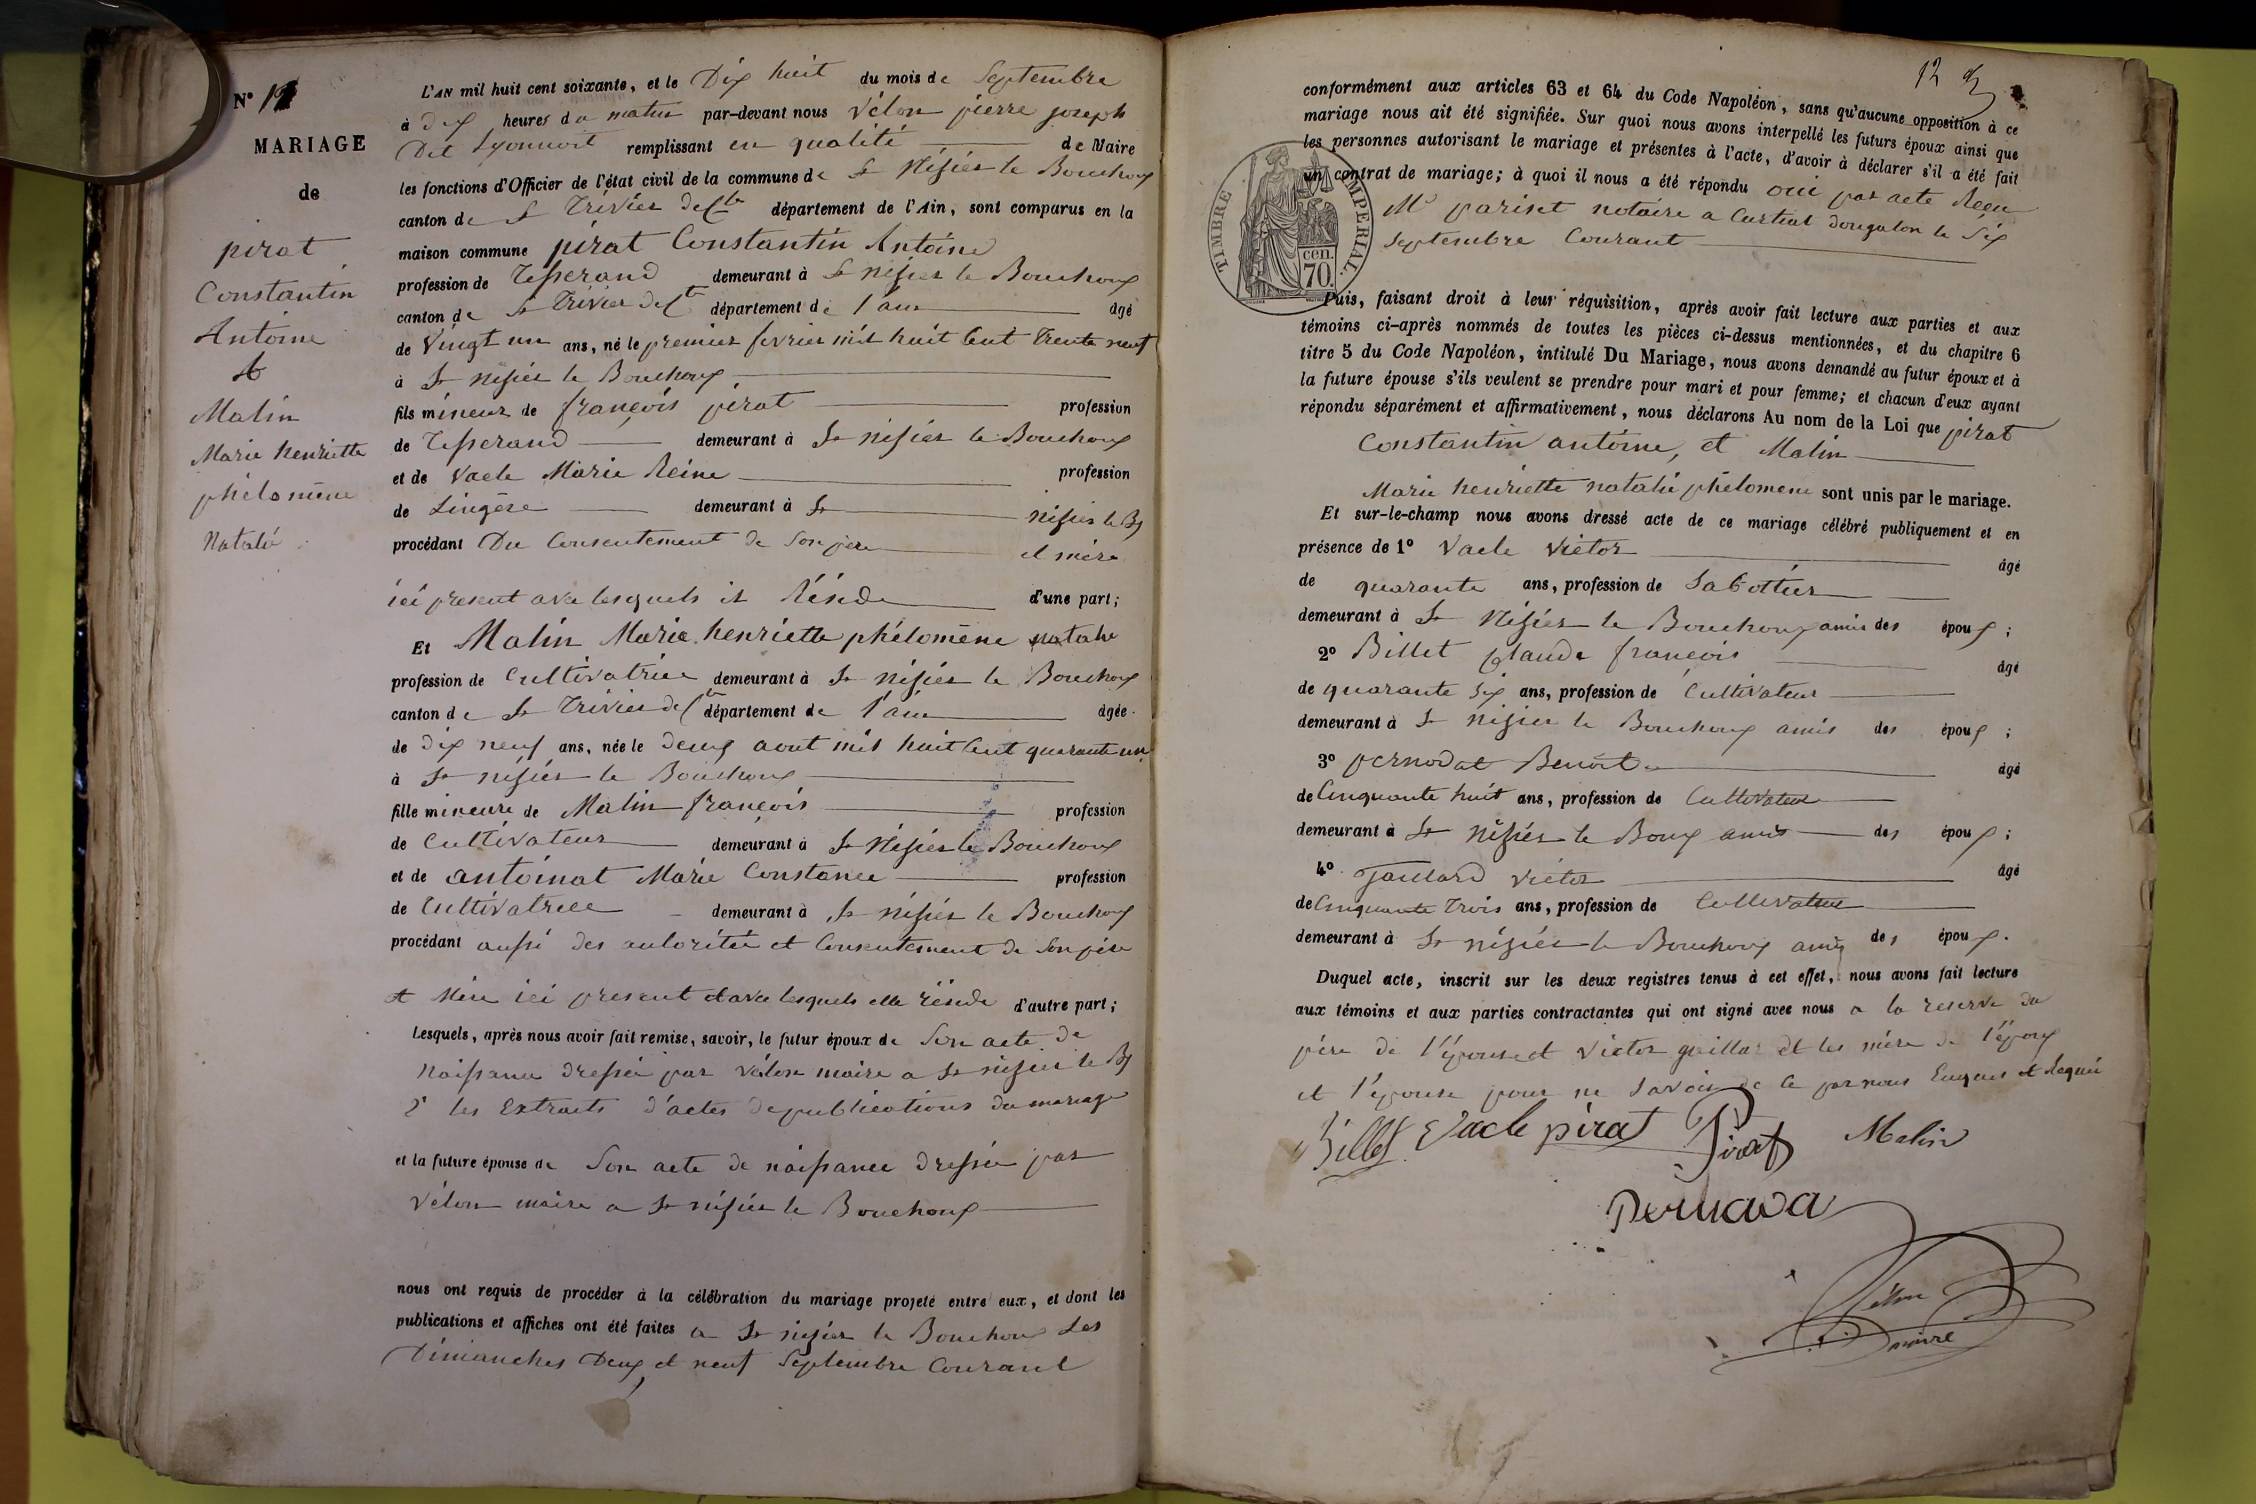 N° 12
MARIAGE
de
pirat
Constantin
Antoine
&
Malin
Marie henriette
phélomène
Natalié
L'AN mil huit cent soixante, et le Dix huit du mois de Septembre
à dix heures du matin par-devant nous Vélon pierre joseph
Dit Lyonnois remplissant en qualité de Maire
les fonctions d'Officier de l'état civil de la commune de St Nisier le Bouchoux
canton de St Trivier de Cte département de l'Ain, sont comparus en la
maison commune pirat Constantin Antoine
profession de Tisserand demeurant à St nisier le Bouchoux
canton de St Trivier de Cte département de l'ain âgé
de Vingt un ans, né le premier fevrier mil huit Cent Trente neuf
à St nisier le Bouchoux
fils mineur de françois pirat profession
de Tisserand demeurant à St nisier le Bouchoux
et de Vacle Marie Reine profession
de Lingère demeurant à St nisier le Bx
procédant Du Consentement de Son père et mère
ici present avec lesquels il Réside d'une part;
Et Malin Marie henriette phélomène natalie
profession de Cultivatrice demeurant à St nisier le Bouchoux
canton de St Trivier de Cte département de l'ain âgée
de dix neuf ans, née le deux aout mil huit Cent quarante un
à St nisier le Bouchoux
fille mineure de Malin françois profession
de Cultivateur demeurant à St Nisier le Bouchoux
et de antoinat Marie Constance profession
de Cultivatrice demeurant à St nisier le Bouchoux
procédant aussi des autorité et Consentement de Son père
et Mère ici present et avec lesquels elle réside d'autre part;
Lesquels, après nous avoir fait remise, savoir, le futur époux de Son acte de
Naissance dressée par Vélon maire a St nisier le Bx
2° les Extraits d'actes de publications du mariage
et la future épouse de Son acte de naissance dressée par
Vélon maire a St nisier le Bouchoux
nous ont requis de procéder à la célébration du mariage projeté entre eux, et dont les
publications et affiches ont été faites a St nisier le Bouchoux Les
Dimanches Deux et neuf Septembre Courant
12
conformément aux articles 63 et 64 du Code Napoléon, sans qu'aucune opposition à ce
mariage nous ait été signifiée. Sur quoi nous avons interpellé les futurs époux ainsi que
les personnes autorisant le mariage et présentes à l'acte, d'avoir à déclarer s'il a été fait
un contrat de mariage; à quoi il nous a été répondu oui par acte Recu
Me pariset notaire a Curtiat dongalon le Six
Septembre Courant
TIMBRE IMPERIAL.
70 cen.
Puis, faisant droit à leur réquisition, après avoir fait lecture aux parties et aux
témoins ci-après nommés de toutes les pièces ci-dessus mentionnées, et du chapitre 6
titre 5 du Code Napoléon, intitulé Du Mariage, nous avons demandé au futur époux et à
la future épouse s'ils veulent se prendre pour mari et pour femme; et chacun d'eux ayant
répondu séparément et affirmativement, nous déclarons Au nom de la Loi que pirat
Constantin antoine, et Malin
Marie henriette natalie phélomene sont unis par le mariage.
Et sur-le-champ nous avons dressé acte de ce mariage célébré publiquement et en
présence de 1° Vacle Victor âgé
de quarante ans, profession de Sabottier
demeurant à St Nisier le Bouchoux amis des époux;
2° Billet Claude françois âgé
de quarante Six ans, profession de Cultivateur
demeurant à St nisier le Bouchoux amis des époux;
3° pernodat Benoit âgé
de Cinquante huit ans, profession de Cultivateur
demeurant à St nisier le Boux amis des époux;
4° Gaillard Victor âgé
de Cinquante Trois ans, profession de Cultivateur
demeurant à St nisier le Bouchoux amis des époux.
Duquel acte, inscrit sur les deux registres tenus à cet effet, nous avons fait lecture
aux témoins et aux parties contractantes qui ont signé avec nous a la reserve du
père de l'épouse et Victor gaillar et les mère de l'époux
et l'épouse pour ne Savoir de ce par nous Enquis et Requis
Billet Vacle pirat Pirat Malin
Pernada
Vélon
maire